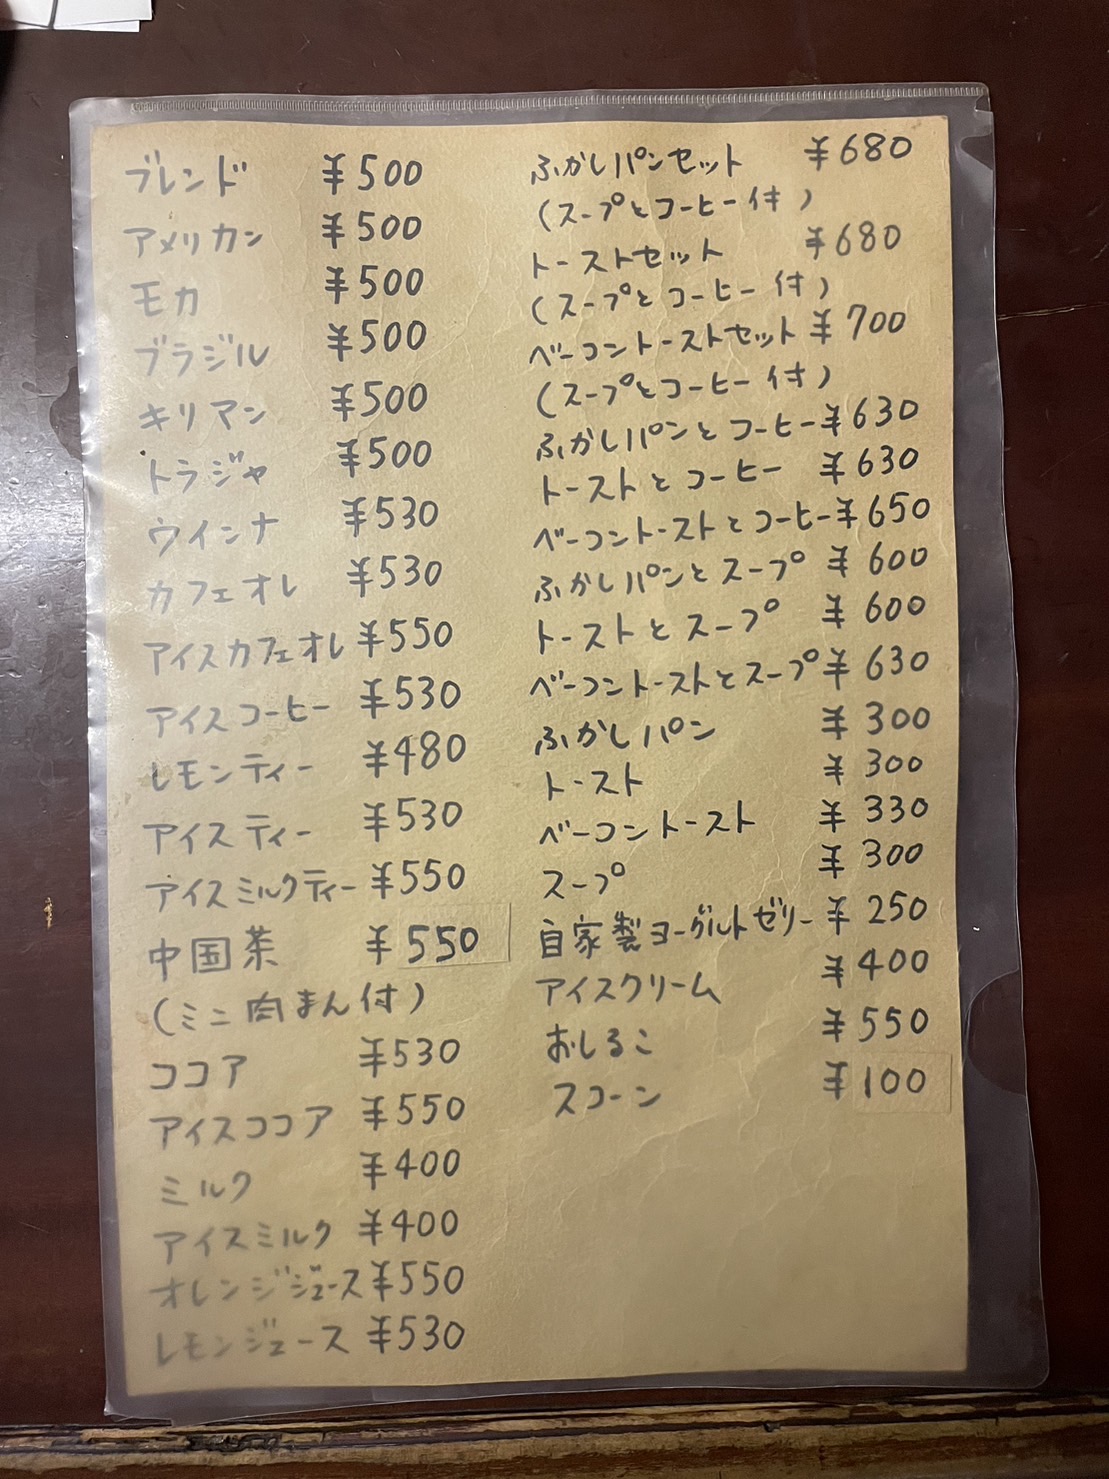 ブレンド ¥500
アメリカン ¥500
モカ ¥500
ブラジル ¥500
キリマン ¥500
トラジャ ¥500
ウインナ ¥530
カフェオレ ¥530
アイスカフェオレ ¥550
アイスコーヒー ¥530
レモンティー ¥480
アイスティー ¥530
アイスミルクティー ¥550
中国茶 ¥550
(ミニ肉まん付)
ココア ¥530
アイスココア ¥550
ミルク ¥400
アイスミルク ¥400
オレンジジュース ¥550
レモンジュース ¥530
ふかしパンセット ¥680
(スープとコーヒー付)
トーストセット ¥680
(スープとコーヒー付)
ベーコントーストセット ¥700
(スープとコーヒー付)
ふかしパンとコーヒー ¥630
トーストとコーヒー ¥630
ベーコントーストとコーヒー ¥650
ふかしパンとスープ ¥600
トーストとスープ ¥600
ベーコントーストとスープ ¥630
ふかしパン ¥300
トースト ¥300
ベーコントースト ¥330
スープ ¥300
自家製ヨーグルトゼリー ¥250
アイスクリーム ¥400
おしるこ ¥550
スコーン ¥100